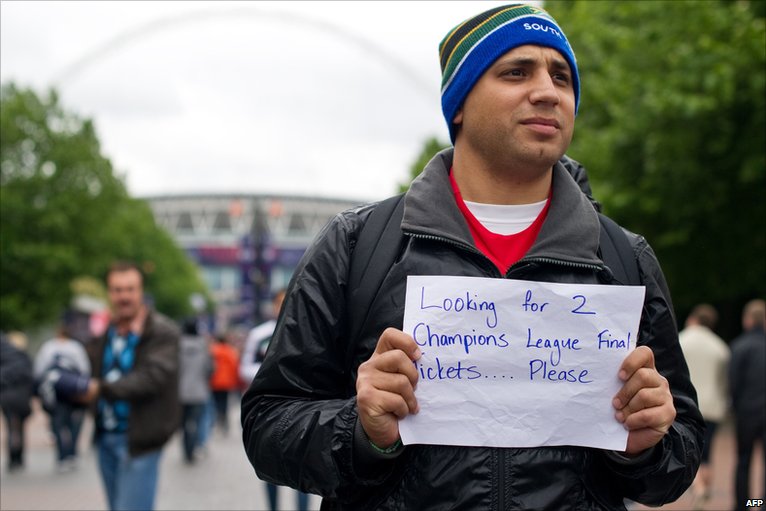 SOUTH
Looking for 2
Champions League Final
Tickets.... Please
AFP